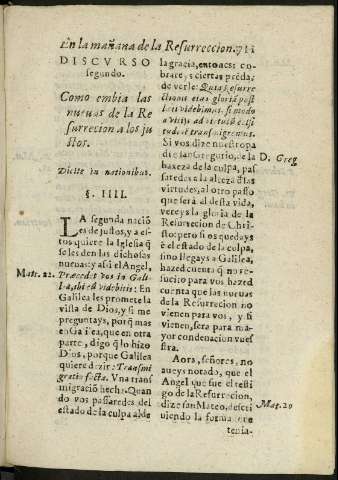 En la mañana de la Resurreccion. 711
DISCVRSO
segundo.
Como embia las
nueuas de la Re
surreccion a los ju
stos.
Dicite in nationibus.
§. IIII.
LA segunda nació
es de justos, y a es-
tos quiere la Iglesia q̃
se les den las dichosas
nueuas: y assi el Angel,
Mat. 22.
Præcedet vos in Gali-
lęa, ibi eũ videbitis: En
Galilea les promete la
vista de Dios, y si me
preguntays, porq̃ mas
en Galilea, que en otra
parte, digo q̃ lo hizo
Dios, porque Galilea
quiere dezir: Transmi
gratio facta. Vna trans
migració hecha. Quan
do vos passaredes del
estado de la culpa al de
la gracia, entonces co-
brareys ciertas prẽdas
de verle:
lectionis eius gloriã post
Si vos dize nuestro pa
dre san Gregorio, de la
D. Greg
baxeza de la culpa, pas
saredes a la alteza d las
virtudes, al otro passo
que será al desta vida,
vereys la gloria de la
Resurreccion de Chri-
sto: pero si os quedays
é el estado de la culpa,
sino llegays a Galilea,
hazed cuenta q̃ no re-
sucito para vos hazed
cuenta que las nueuas
de la Resurreccion no
vienen para vos, y si
vienen, sera para ma-
yor condenacion vue-
stra.
Aora, señores, no
aueys notado, que el
Angel que fue el testi
go de la Resurreccion,
dize san Mateo, descri
Mat. 20
uiendo la forma que
tenia-